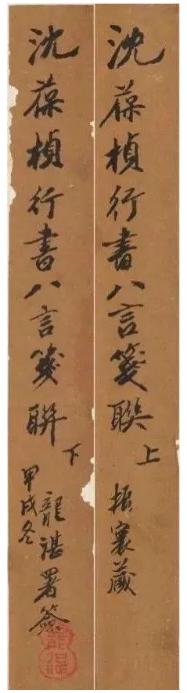 沈葆楨行書八言箋聯
上
振襄藏
沈葆楨行書八言箋聯
下
龍湛署簽
甲戌冬